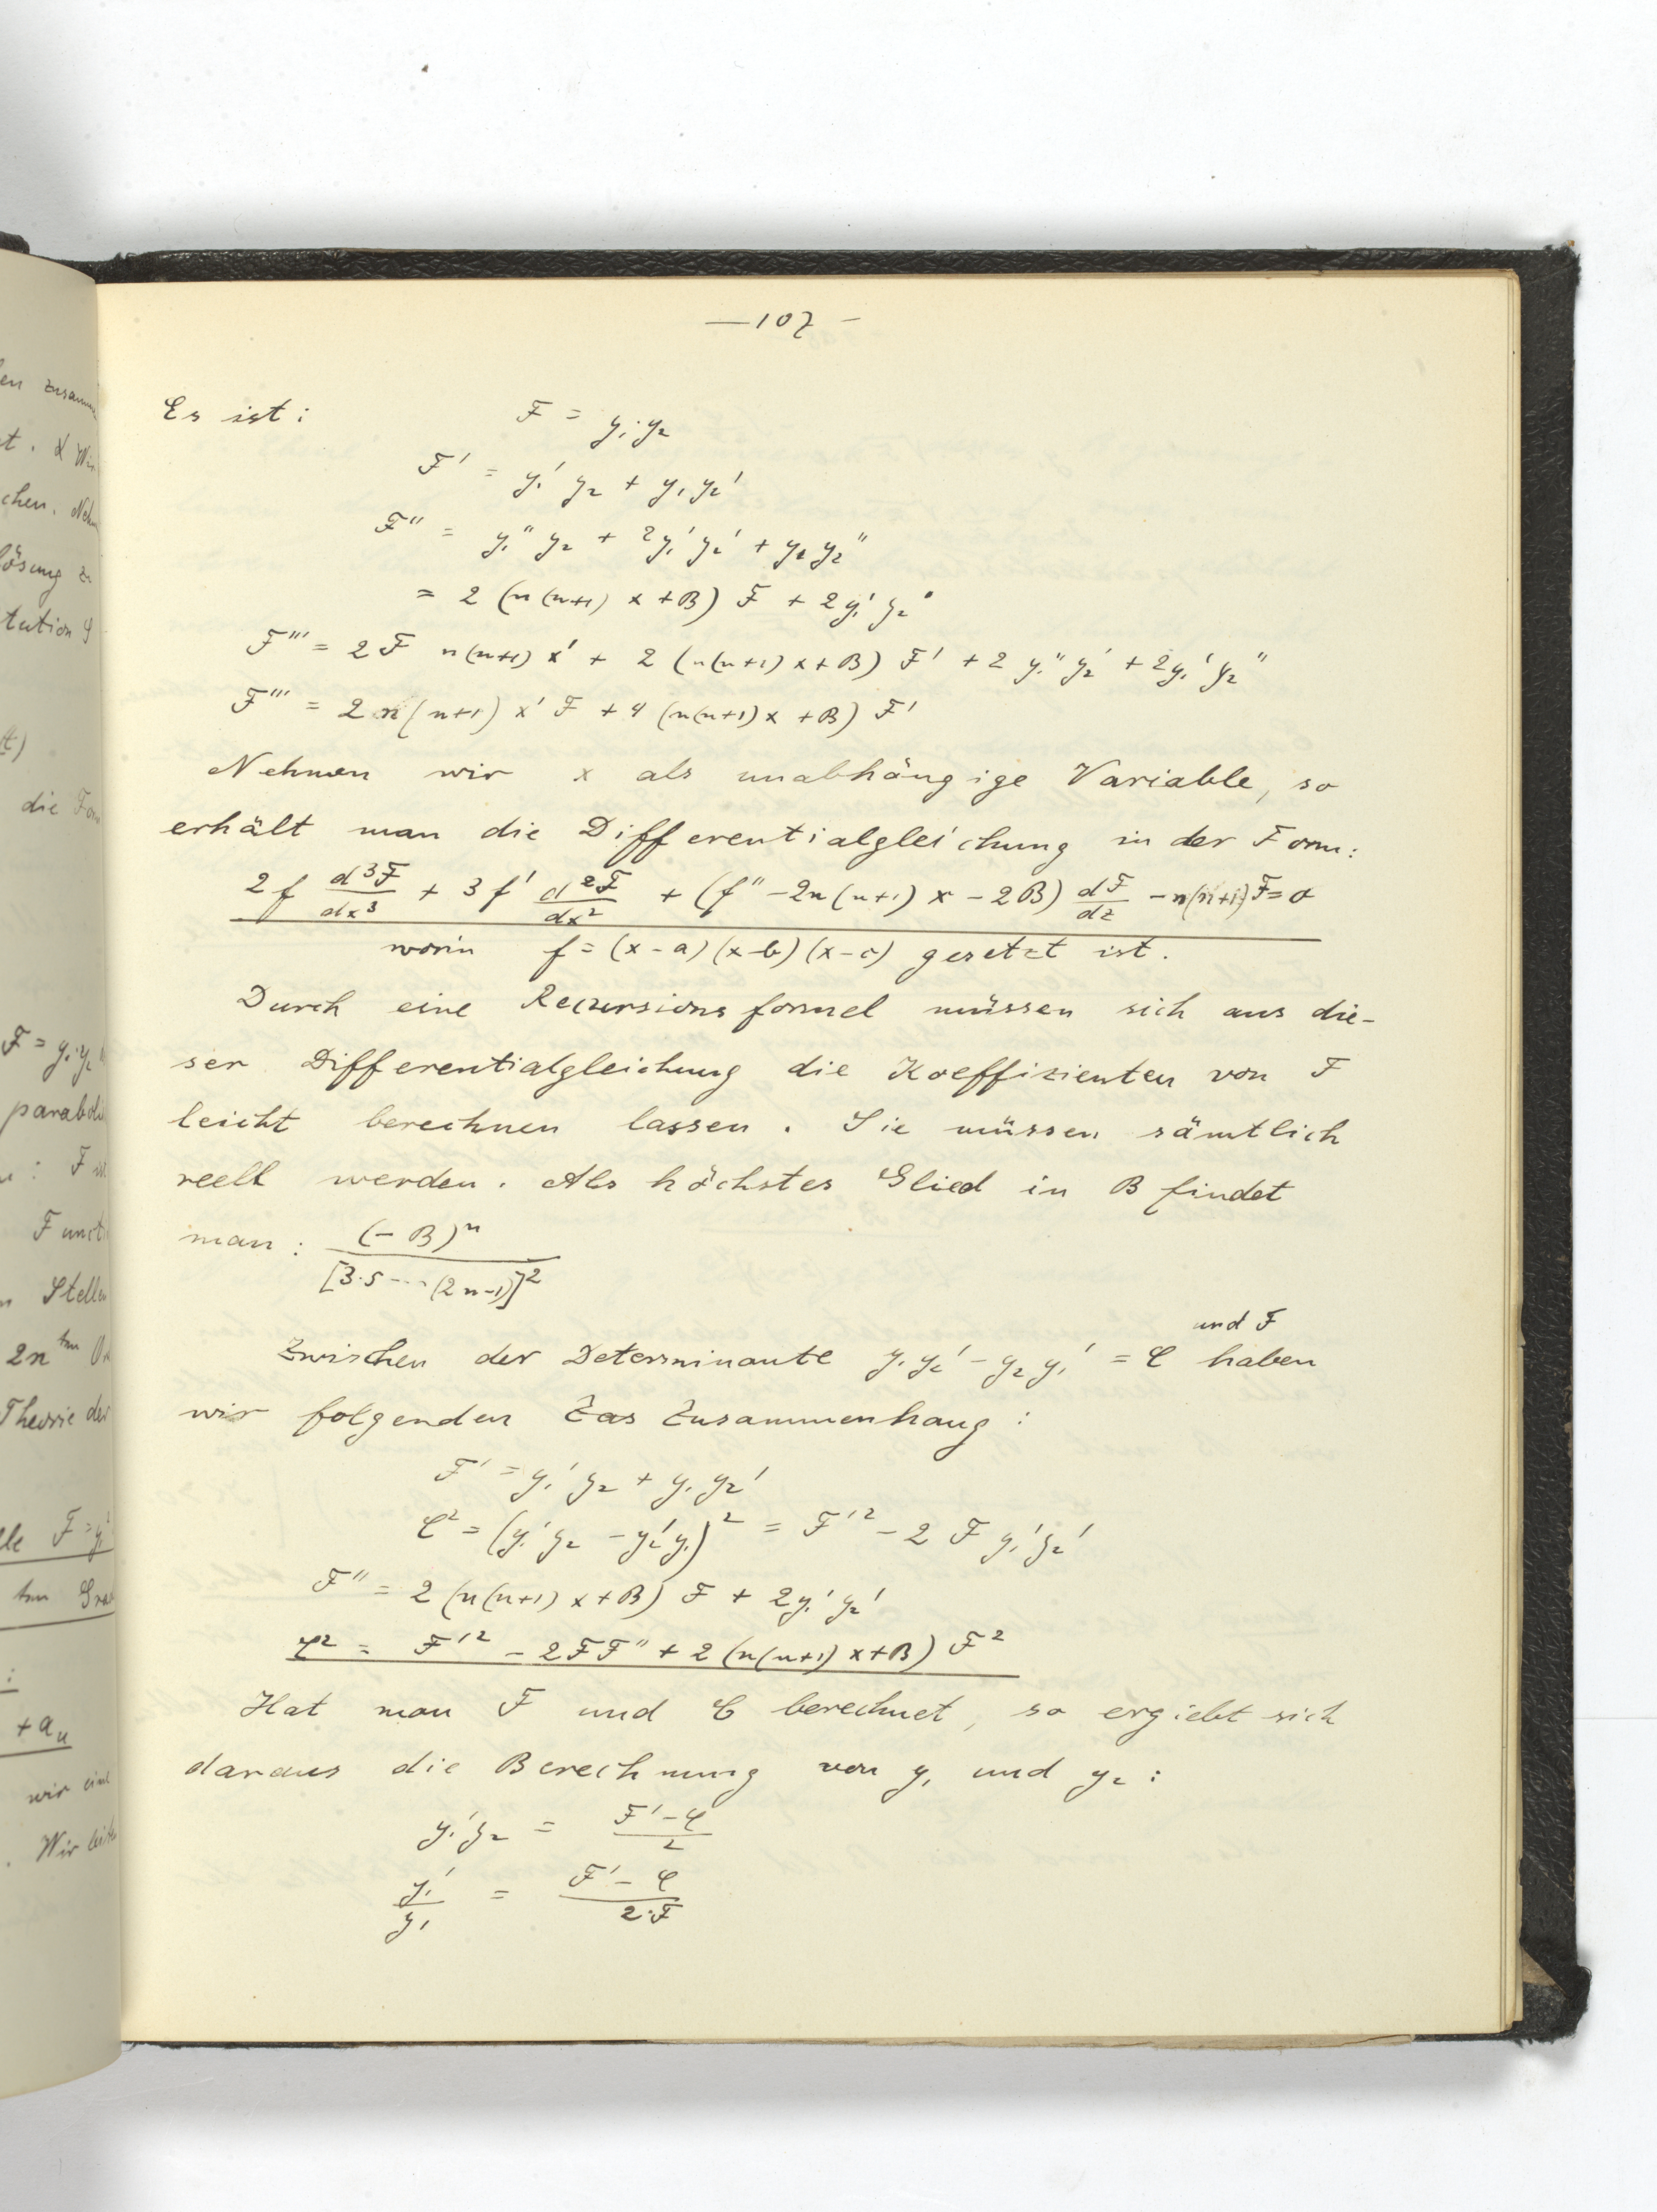 —107—
Es ist: F = y₁y₂
F' = y₁' y₂ + y₁ y₂'
F'' = y₁'' y₂ + 2y₁' y₂' + y₁ y₂''
= 2 (n(n+1) x + B) F + 2y₁' y₂'
F''' = 2 F n(n+1) x' + 2 (n(n+1) x + B) F' + 2 y₁'' y₂' + 2y₁' y₂''
F''' = 2 n(n+1) x' F + 4 (n(n+1) x + B) F'
Nehmen wir x als unabhängige Variable, so
erhält man die Differentialgleichung in der Form:
2 f d³F/dx³ + 3 f' d²F/dx² + (f'' - 2n(n+1) x - 2B) dF/dz - n(n+1) F = 0
worin f = (x-a)(x-b)(x-c) gesetzt ist.
Durch eine Recursionsformel müssen sich aus die-
ser Differentialgleichung die Koeffizienten von F
leicht berechnen lassen. Sie müssen sämtlich
reell werden. Als höchstes Glied in B findet
man: (-B)ⁿ / [3·5---(2n-1)]²
und F
Zwischen der Determinante y₁y₂' - y₂y₁' = C haben
wir folgenden Zus Zusammenhang:
F' = y₁' y₂ + y₁ y₂'
C² = (y₁' y₂ - y₂' y₁)² = F'² - 2 F y₁' y₂'
F'' = 2 (n(n+1) x + B) F + 2y₁' y₂'
C² = F'² - 2FF'' + 2 (n(n+1) x + B) F²
Hat man F und C berechnet, so ergiebt sich
daraus die Berechnung von y₁ und y₂:
y₁' y₂ = (F' - C)/2
y₁'/y₁ = (F' - C)/2·F